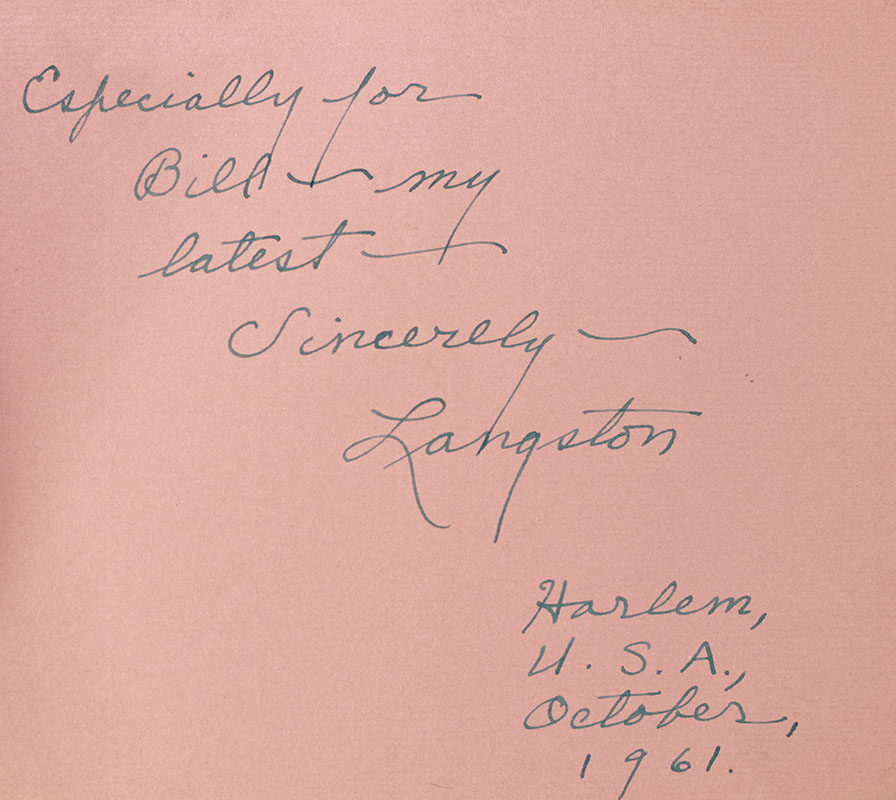 Especially for
Bill — my
latest —
Sincerely —
Langston
Harlem,
U. S. A.,
October,
1961.